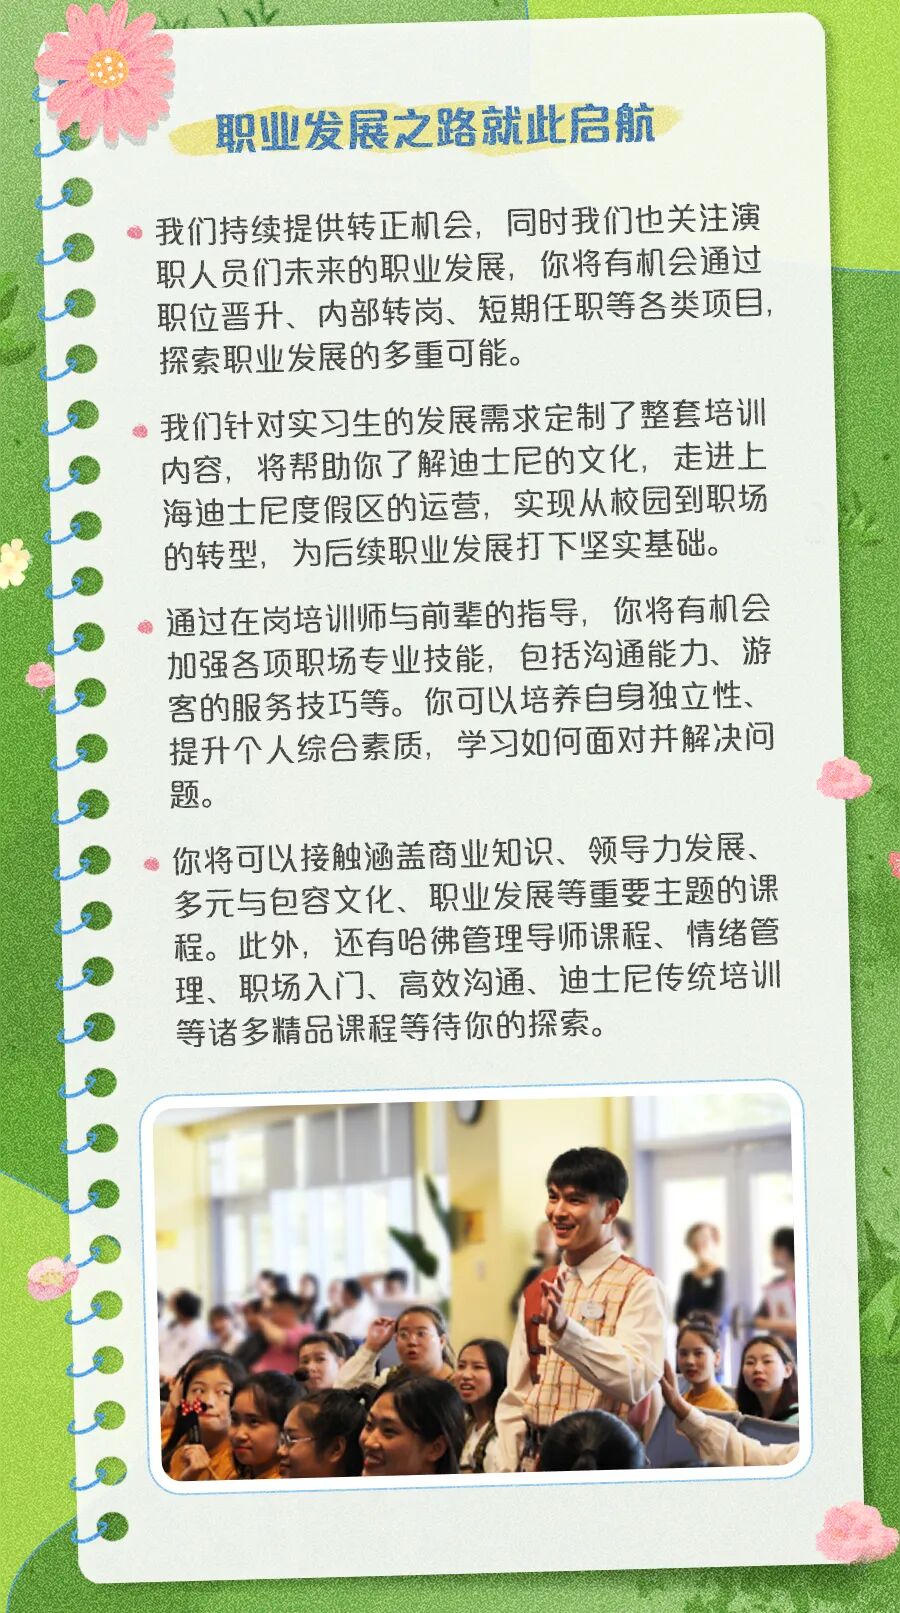 职业发展之路就此启航
我们持续提供转正机会，同时我们也关注演
职人员们未来的职业发展，你将有机会通过
职位晋升、内部转岗、短期任职等各类项目，
探索职业发展的多重可能。
我们针对实习生的发展需求定制了整套培训
内容，将帮助你了解迪士尼的文化，走进上
海迪士尼度假区的运营，实现从校园到职场
的转型，为后续职业发展打下坚实基础。
通过在岗培训师与前辈的指导，你将有机会
加强各项职场专业技能，包括沟通能力、游
客的服务技巧等。你可以培养自身独立性、
提升个人综合素质，学习如何面对并解决问
题。
你将可以接触涵盖商业知识、领导力发展、
多元与包容文化、职业发展等重要主题的课
程。此外，还有哈佛管理导师课程、情绪管
理、职场入门、高效沟通、迪士尼传统培训
等诸多精品课程等待你的探索。